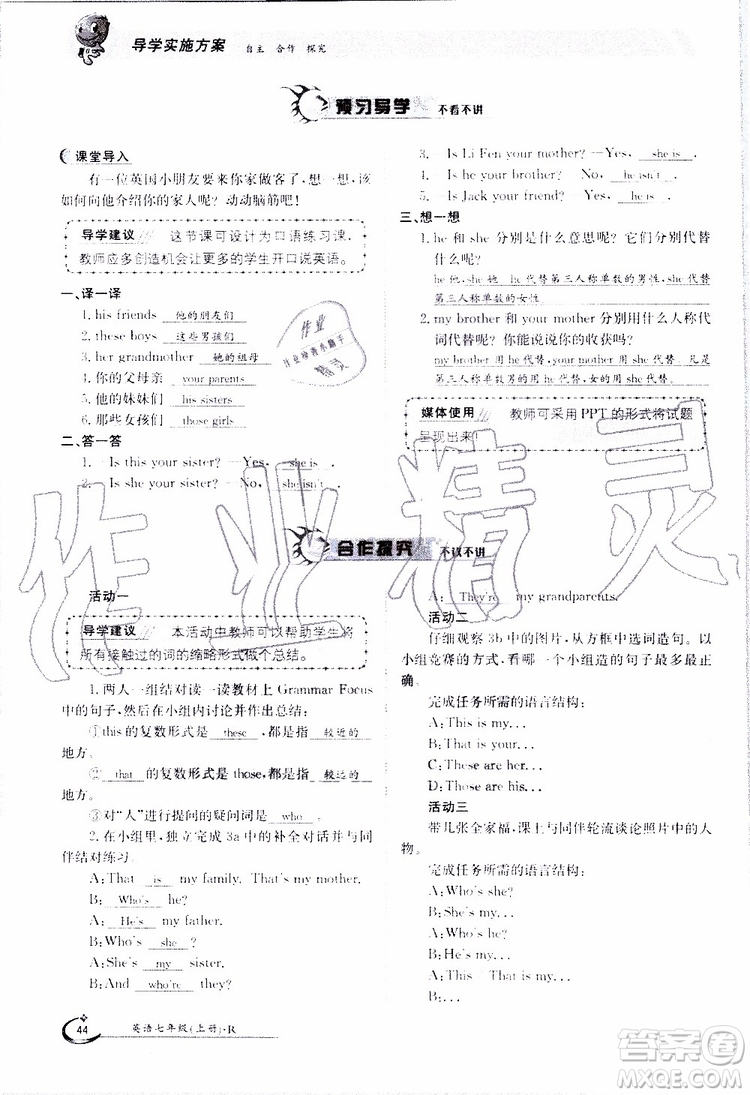 导学实施方案 自主 合作 探究
预习导学 不看不讲
课堂导入
有一位英国小朋友要来你家做客了,想一想,该
如何向他介绍你的家人呢?动动脑筋吧!
导学建议 这节课可设计为口语练习课,
教师应多创造机会让更多的学生开口说英语。
一、译一译
1. his friends 他的朋友们
2. these boys 这些男孩们
3. her grandmother 她的祖母
4. 你的父母亲 your parents
5. 他的妹妹们 his sisters
6. 那些女孩们 those girls
二、答一答
1. —Is this your sister? —Yes, she is.
2. —Is she your sister? —No, she isn't.
3. —Is Li Fen your mother? —Yes, she is.
4. —Is he your brother? —No, he isn't.
5. —Is Jack your friend? —Yes, he is.
三、想一想
1. he 和 she 分别是什么意思呢?它们分别代替
什么呢?
he 他,she 她。he 代替第三人称单数的男性,she 代替
第三人称单数的女性。
2. my brother 和 your mother 分别用什么人称代
词代替呢?你能说说你的收获吗?
my brother 用 he 代替,your mother 用 she 代替。凡是
第三人称单数男的用 he 代替,女的用 she 代替。
媒体使用 教师可采用 PPT 的形式将试题
呈现出来!
合作探究 不议不讲
活动一
导学建议 本活动中教师可以帮助学生将
所有接触过的词的缩略形式做个总结。
1. 两人一组结对读一读教材上 Grammar Focus
中的句子,然后在小组内讨论并作出总结:
①this 的复数形式是 these ,都是指 较近的
地方。
② that 的复数形式是 those,都是指 较远的
地方。
③对“人”进行提问的疑问词是 who 。
2. 在小组里,独立完成 3a 中的补全对话并与同
伴结对练习。
A: That is my family. That's my mother.
B: Who's he?
A: He's my father.
B: Who's she?
A: She's my sister.
B: And who are they?
A: They're my grandparents.
活动二
仔细观察 3b 中的图片,从方框中选词造句。以
小组竞赛的方式,看哪一个小组造的句子最多最正
确。
完成任务所需的语言结构:
A: This is my...
B: That is your...
C: These are her...
D: Those are his...
活动三
带几张全家福,课上与同伴轮流谈论照片中的人
物。
完成任务所需的语言结构:
A: Who's she?
B: She's my...
A: Who's he?
B: He's my...
A: Who're they?
B: ...
44 英语七年级(上册)·R
作业精灵
答案圈